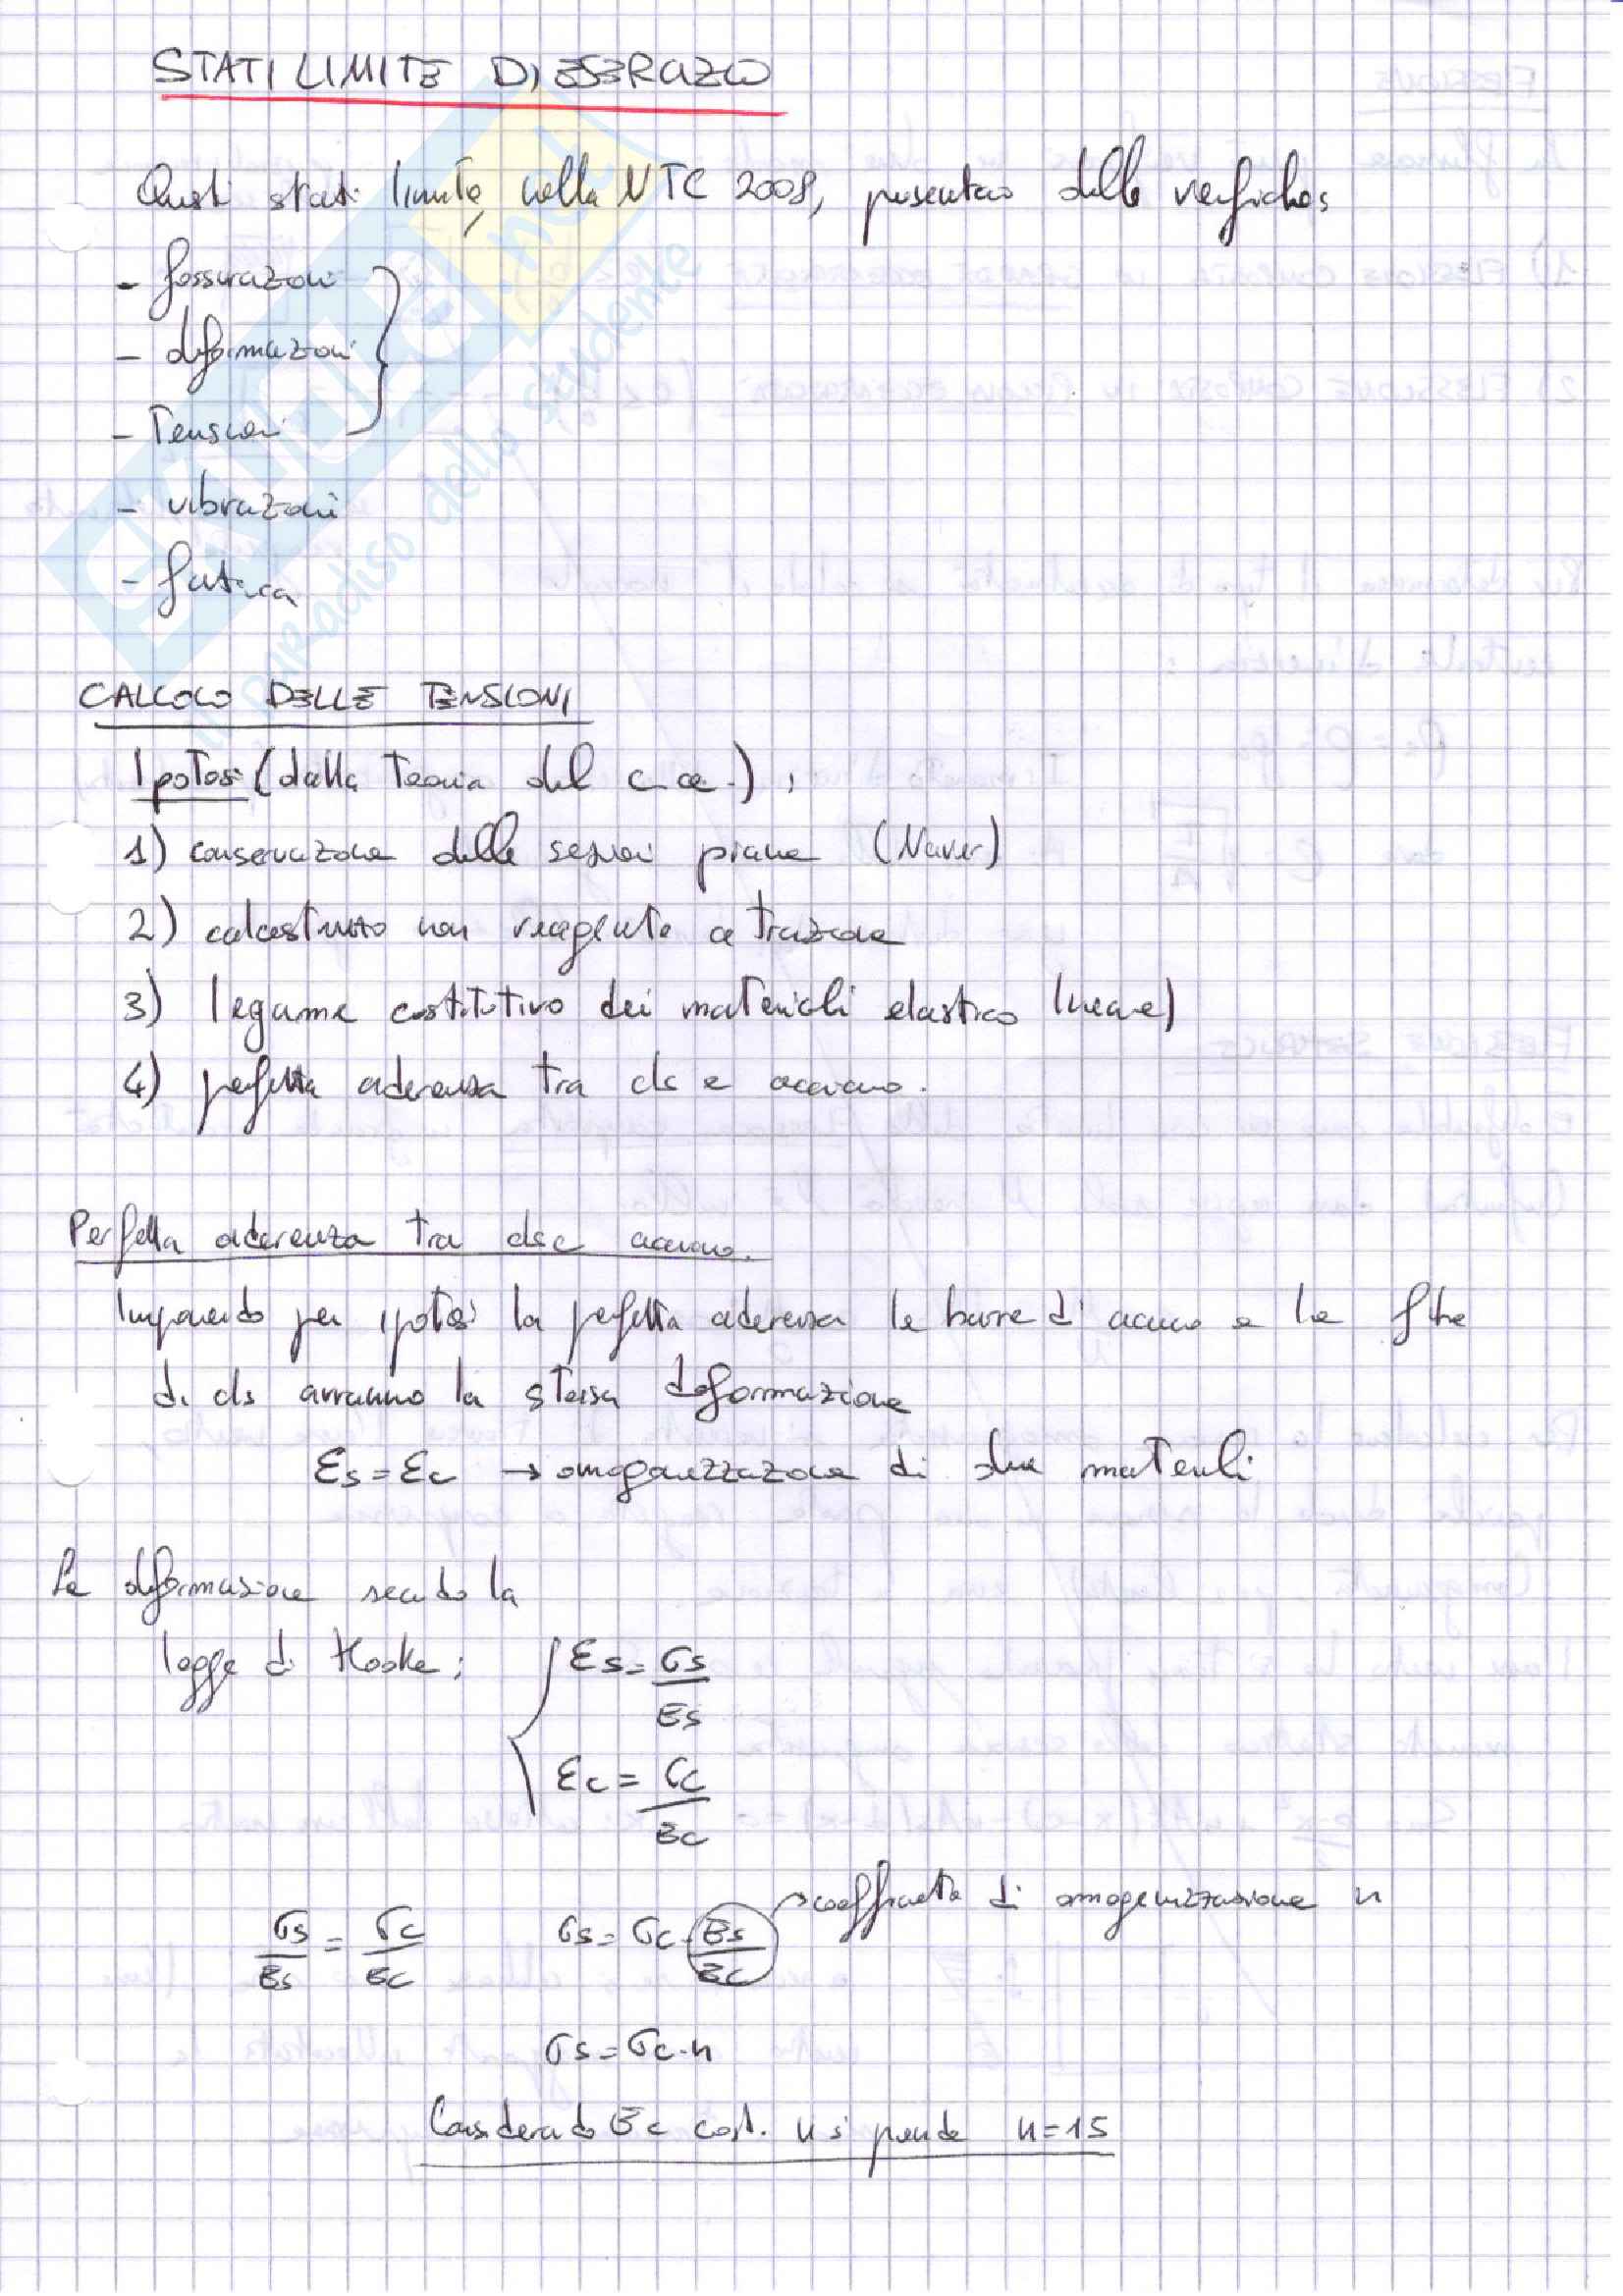 STATI LIMITE DI ESERCIZIO
Questi stati limite, nella NTC 2008, presentano delle verifiche:
- fessurazioni
- deformazioni
- Tensioni
- vibrazioni
- fatica
CALCOLO DELLE TENSIONI
Ipotesi (dalla Teoria del c.a.):
1) conservazione delle sezioni piane (Navier)
2) calcestruzzo non reagente a trazione
3) legame costitutivo dei materiali elastico lineare)
4) perfetta aderenza tra cls e acciaio.
Perfetta aderenza tra cls e acciaio.
Imponendo per ipotesi la perfetta aderenza le barre di acciaio e le fibre
di cls avranno la stessa deformazione
εs = εc → omogenizzazione di due materiali
Le deformazione secondo la
legge di Hooke:
εs = σs/Es
εc = σc/Ec
σs/Es = σc/Ec σs = σc · Es/Ec → coefficiente di omogenizzazione n
σs = σc · n
Considerando Ec cost. n si prende n=15
il paradiso dello studente